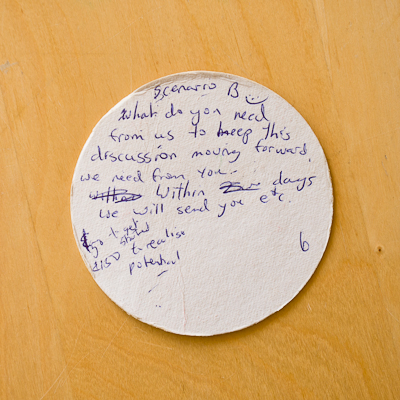 Scenario B
What do you need
from us to keep this
discussion moving forward.
we need from you..
Within days
we will send you etc.
to get
started
£150 to realise
potential
6